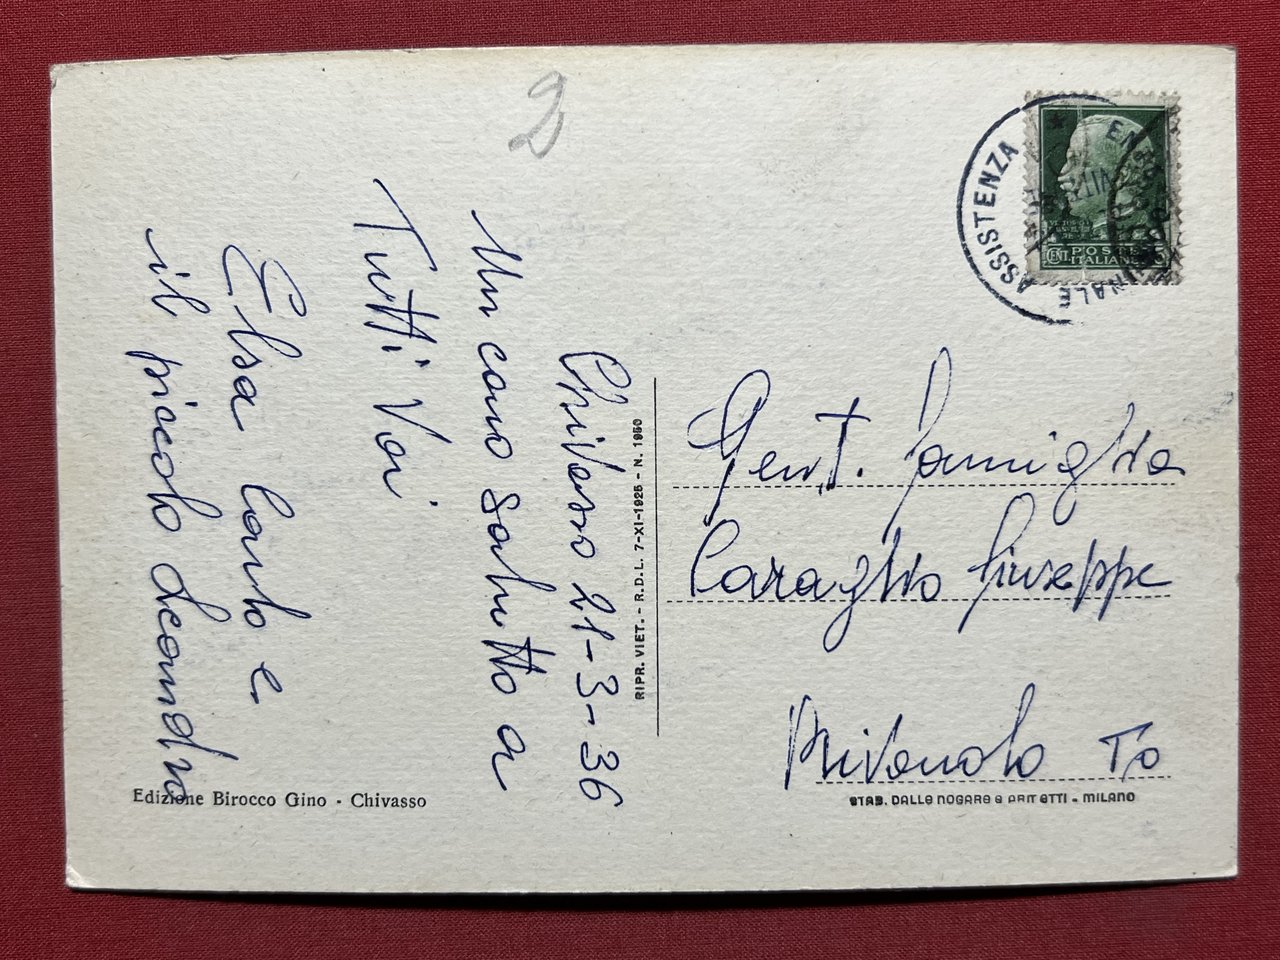 2
Chivasso 21-3-36
Un caro saluto a
Tutti Voi
Elsa Carlo e
il piccolo Leandro
Edizione Birocco Gino - Chivasso
RIPR. VIET. - R.D.L. 7-XI-1925 - N. 1950
ASSISTENZA
POSTE
ITALIANE
CENT
Gent. Famiglia
Caraglio Giuseppe
Rivarolo To
STAB. DALLE NOGARE E ARMETTI - MILANO